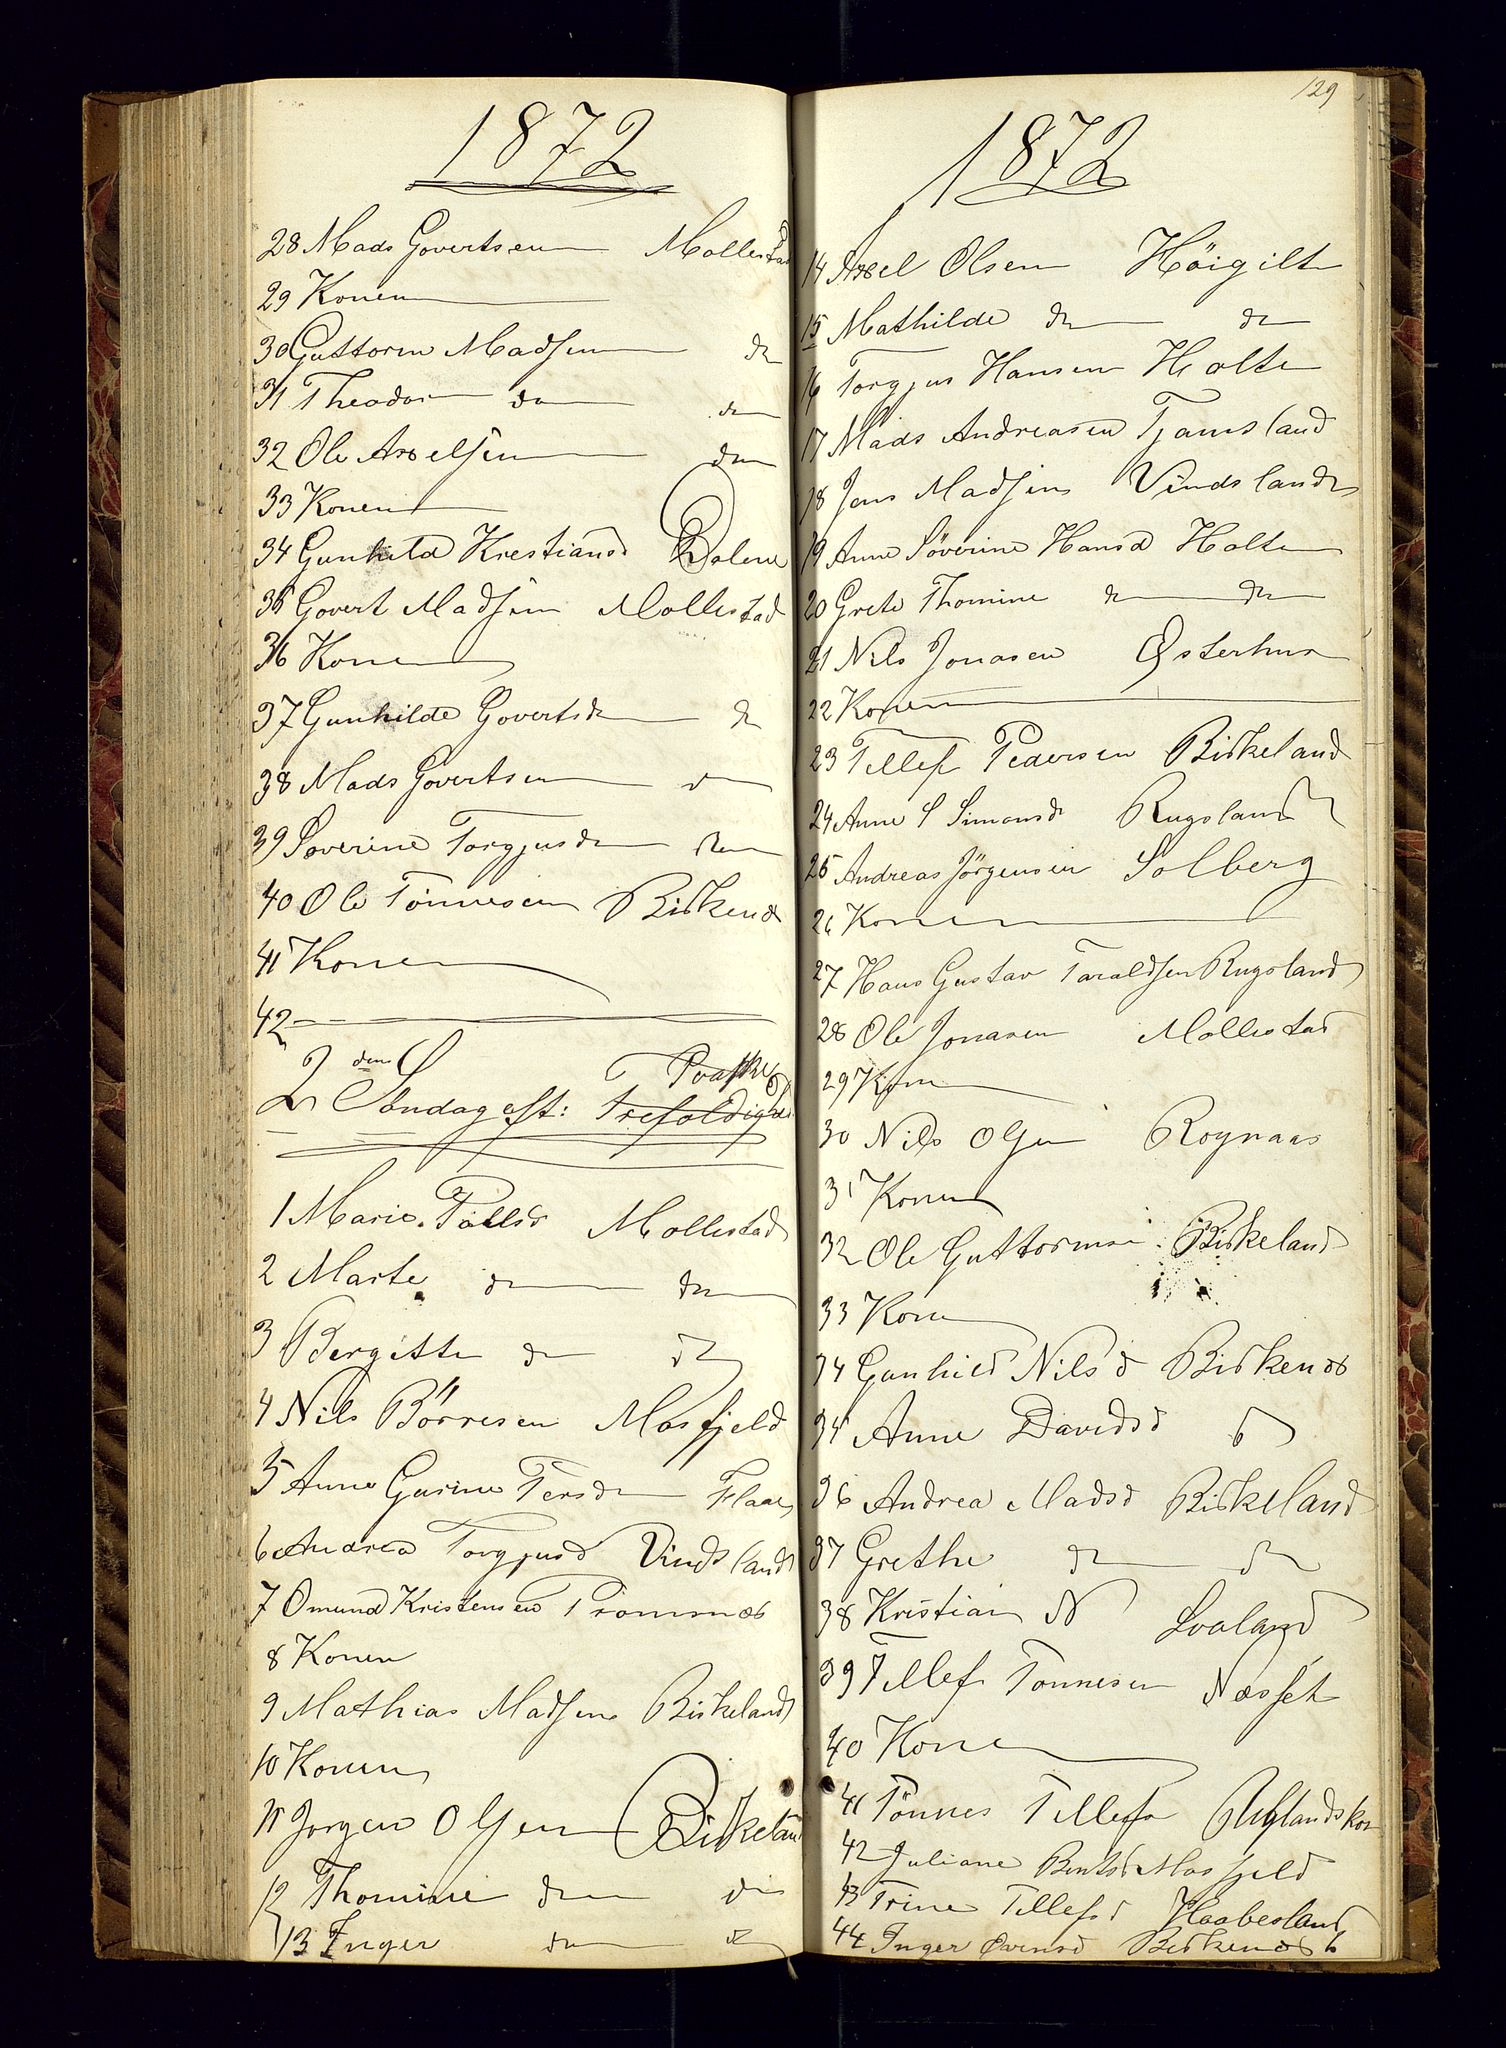 1872
28 Mads Govertsen Mollestad
29 Konen
30 Guttorm Madsen do
31 Theodor do do
32 Ole Axelsen do
33 Konen
34 Gunhild Krestiansd Dolene
35 Govert Madsen Mollestad
36 Konen
37 Gunhilde Govertsd do
38 Mads Govertsen do
39 Soverine Torgjusd do
40 Ole Tönnesen Birkenæs
41 Konen
42
Paaske
2den Söndag eft: Trefoldigh.
1 Marie Pallsd Mollestad
2 Marte do do
3 Bergitte do do
4 Nils Börresen Mosfjeld
5 Anne Gurine Tersd Flaa
6 Andrea Torgjusd Vindsland
7 Omund Kristensen Tromnæs
8 Konen
9 Mathias Madsen Birkeland
10 Konen
11 Jorgen Olsen Birkeland
12 Thomine do do
13 Inger do do
129
1872
14 Axel Olsen Höigilt
15 Mathilde do do
16 Torgjus Hansen Holte
17 Mads Andreasen Tjamsland
18 Jens Madsen Vindsland
19 Anne Söverine Hansd Holte
20 Grete Thomine do do
21 Nils Jonasen Østerhus
22 Konen
23 Tellef Pedersen Birkeland
24 Anne S Simonsd Rugsland
25 Andreas Jörgensen Solberg
26 Konen
27 Hans Gustav Taraldsen Rugsland
28 Ole Jonasen Mollestad
29 Kone
30 Nils Olsen Rognaas
31 Konen
32 Ole Guttormse Birkeland
33 Kone
34 Gunhild Nilsd Birkenæs
34 Anne Davidsd
36 Andrea Madsd Birkeland
37 Grethe do do
38 Kristian N Svaland
39 Tellef Tonnesen Næsset
40 Kone
41 Tönnes Tellefs Uglandskor
42 Juliane Bentsd Mosfjeld
43 Trine Tellefsd Haabesland
44 Inger Ovensd Birkenæs